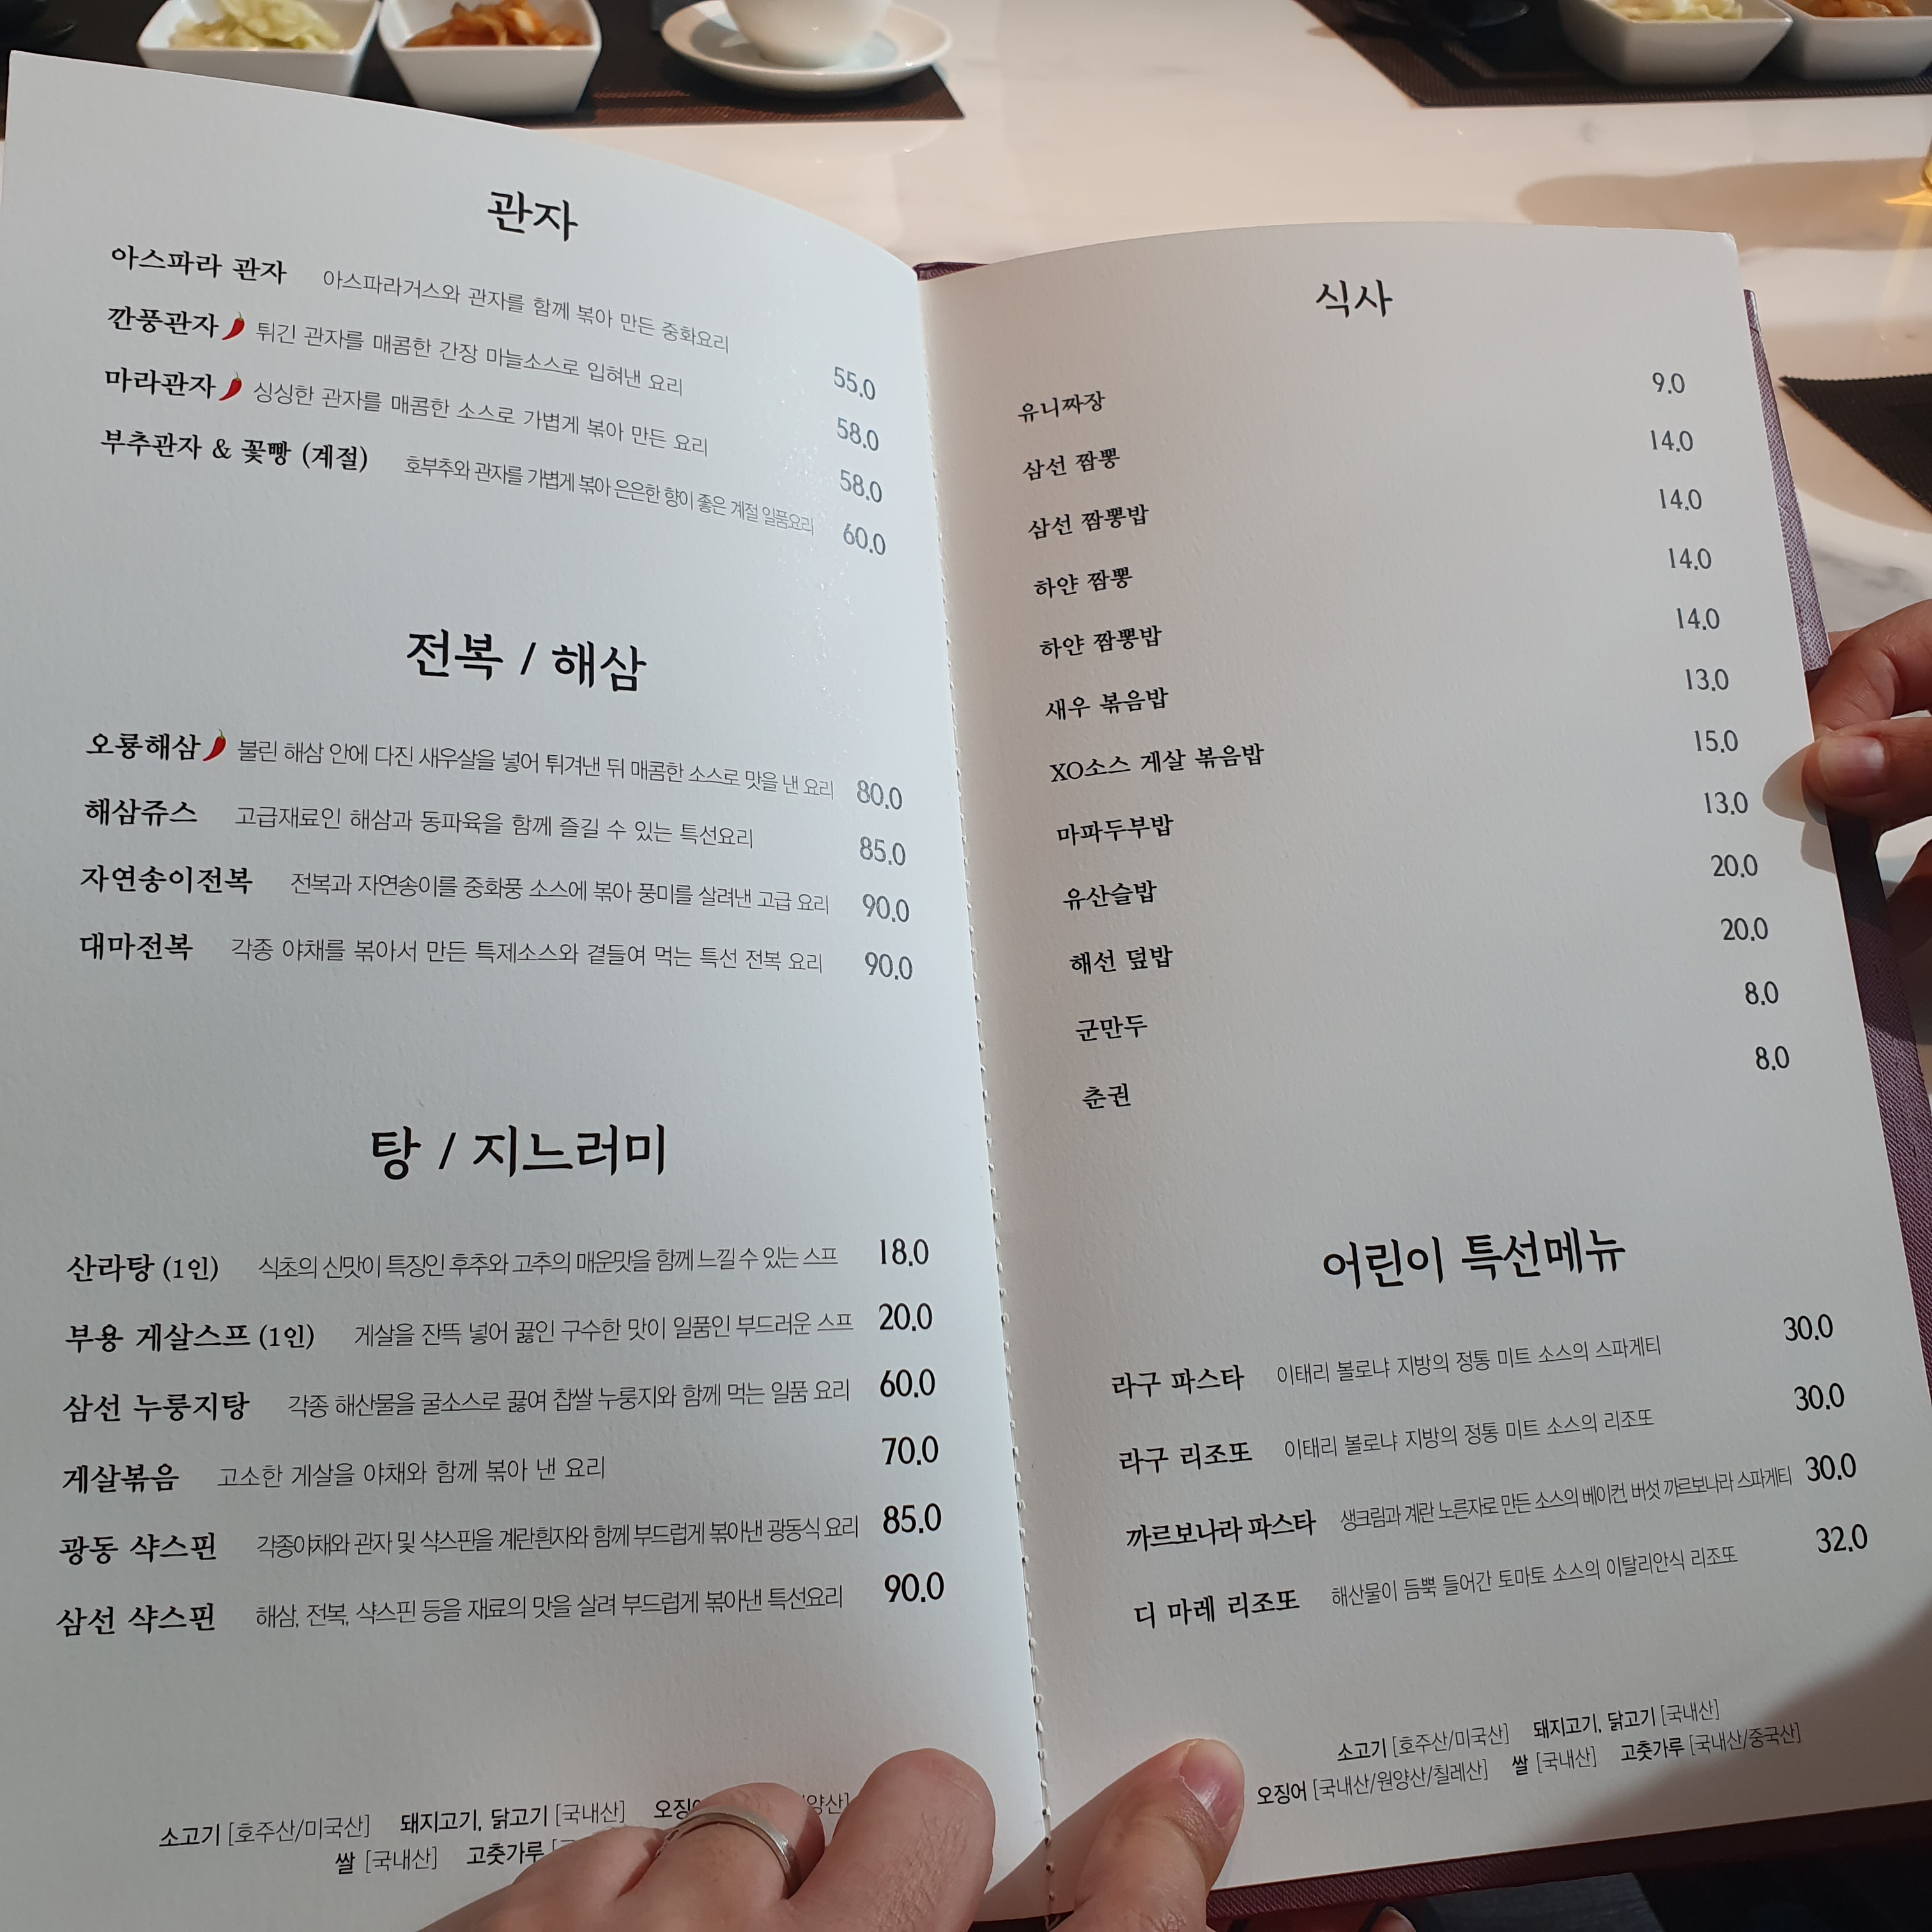 관자
아스파라 관자 아스파라거스와 관자를 함께 볶아 만든 중화요리 55.0
깐풍관자 튀긴 관자를 매콤한 간장 마늘소스로 입혀낸 요리 58.0
마라관자 싱싱한 관자를 매콤한 소스로 가볍게 볶아 만든 요리 58.0
부추관자 & 꽃빵 (계절) 호부추와 관자를 가볍게 볶아 은은한 향이 좋은 계절 일품요리 60.0
전복 / 해삼
오룡해삼 불린 해삼 안에 다진 새우살을 넣어 튀겨낸 뒤 매콤한 소스로 맛을 낸 요리 80.0
해삼쥬스 고급재료인 해삼과 동파육을 함께 즐길 수 있는 특선요리 85.0
자연송이전복 전복과 자연송이를 중화풍 소스에 볶아 풍미를 살려낸 고급 요리 90.0
대마전복 각종 야채를 볶아서 만든 특제소스와 곁들여 먹는 특선 전복 요리 90.0
탕 / 지느러미
산라탕 (1인) 식초의 신맛이 특징인 후추와 고추의 매운맛을 함께 느낄 수 있는 스프 18.0
부용 게살스프 (1인) 게살을 잔뜩 넣어 끓인 구수한 맛이 일품인 부드러운 스프 20.0
삼선 누룽지탕 각종 해산물을 굴소스로 끓여 찹쌀 누룽지와 함께 먹는 일품 요리 60.0
게살볶음 고소한 게살을 야채와 함께 볶아 낸 요리 70.0
광동 샥스핀 각종야채와 관자 및 샥스핀을 계란흰자와 함께 부드럽게 볶아낸 광동식 요리 85.0
삼선 샥스핀 해삼, 전복, 샥스핀 등을 재료의 맛을 살려 부드럽게 볶아낸 특선요리 90.0
소고기 [호주산/미국산] 돼지고기, 닭고기 [국내산]
쌀 [국내산] 고춧가루
식사
유니짜장 9.0
삼선 짬뽕 14.0
삼선 짬뽕밥 14.0
하얀 짬뽕 14.0
하얀 짬뽕밥 14.0
새우 볶음밥 13.0
XO소스 게살 볶음밥 15.0
마파두부밥 13.0
유산슬밥 20.0
해선 덮밥 20.0
군만두 8.0
춘권 8.0
어린이 특선메뉴
라구 파스타 이태리 볼로냐 지방의 정통 미트 소스의 스파게티 30.0
라구 리조또 이태리 볼로냐 지방의 정통 미트 소스의 리조또 30.0
까르보나라 파스타 생크림과 계란 노른자로 만든 소스의 베이컨, 버섯 까르보나라 스파게티 30.0
디 마레 리조또 해산물이 듬뿍 들어간 토마토 소스의 이탈리안식 리조또 32.0
소고기 [호주산/미국산] 돼지고기, 닭고기 [국내산]
오징어 [국내산/원양산/칠레산] 쌀 [국내산] 고춧가루 [국내산/중국산]